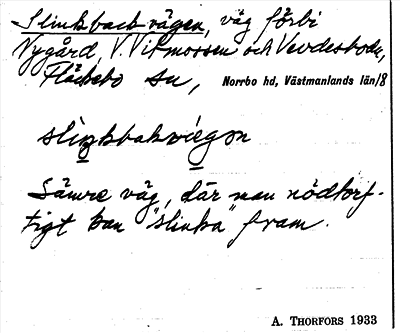 Slinkbackvägen, väg förbi
Nygård, V. Vitmossen och Vevdesbodu,
Fläckebo sn, Norrbo hd, Västmanlands län/8
slinkbakvägen
Sämre väg, där man nödtorf-
tigt kan "slinka" fram.
A. THORFORS 1933